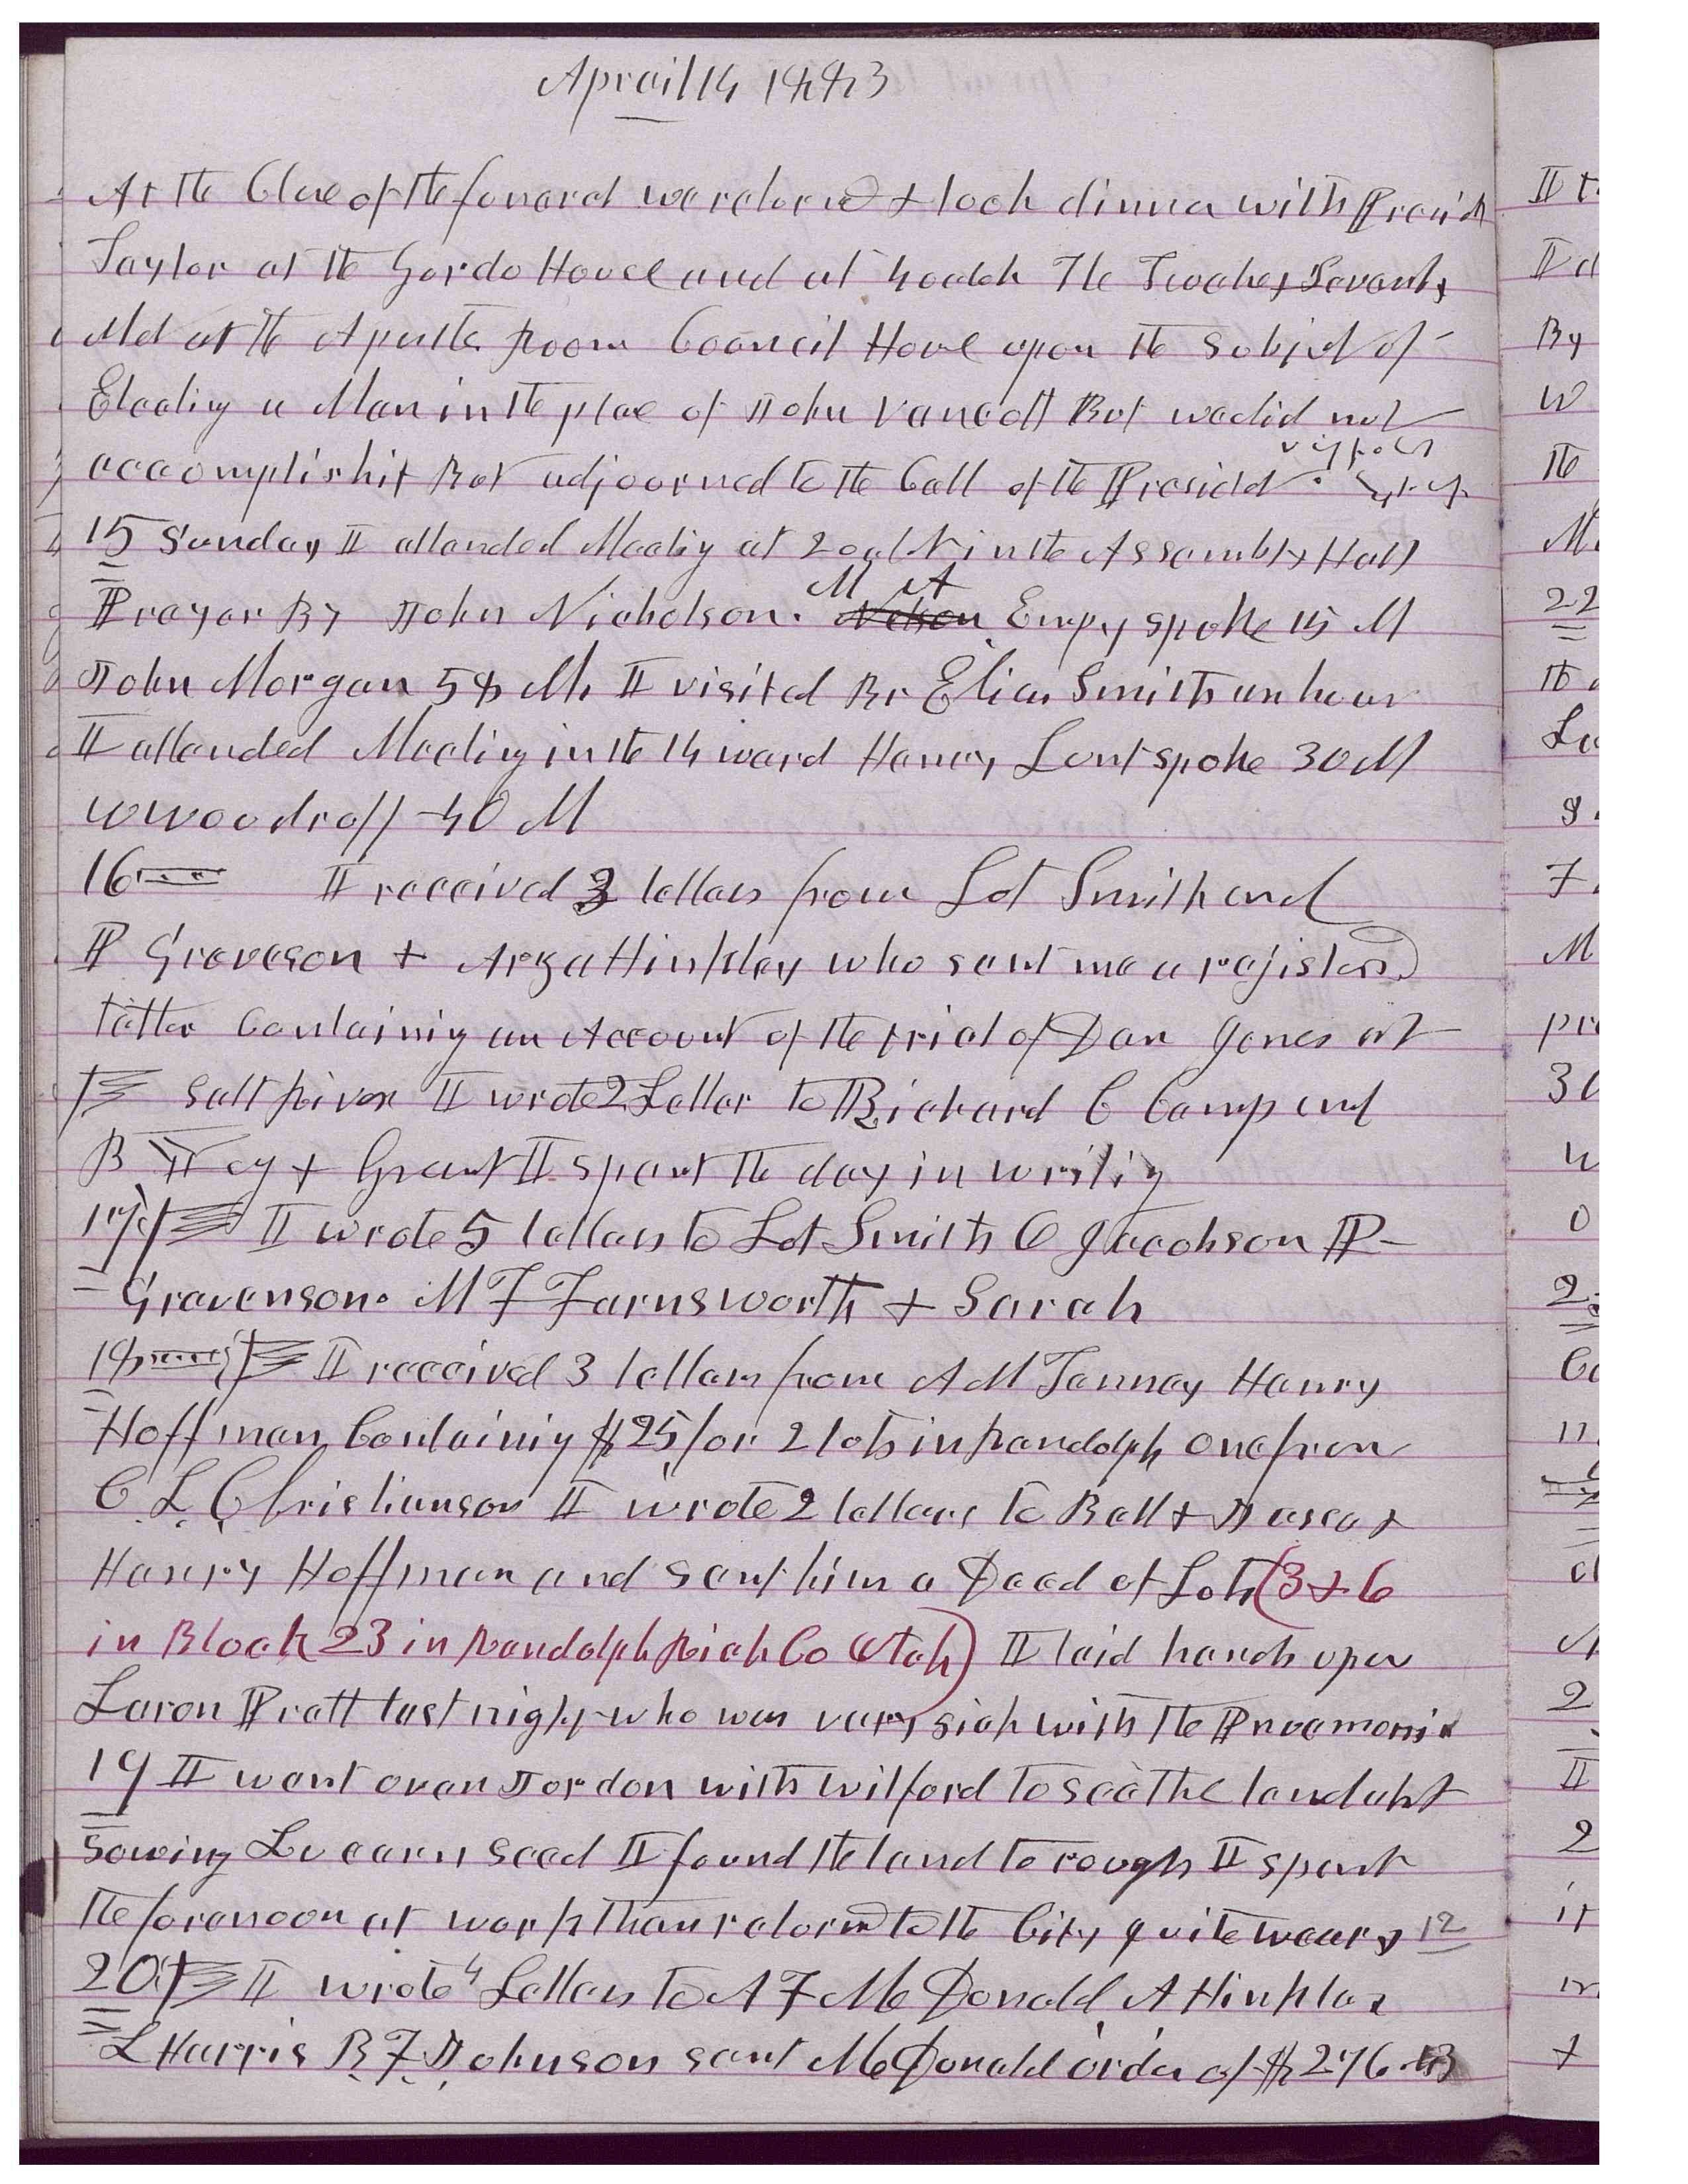 Aprail 14 1883
At the Close of the funeral we returned & took dinner with Presidt
Taylor at the Gardo House and at 4 oclok The Twelve & Seventy
Met at the Apostles Room Council House upon the subject of
Electing a Man in the place of John Vancott But we did not
accomplish it But adjourned to the Call of the President.
15 Sunday I attended Meeting at 2 oclk in the Assembly Hall
Prayer By John Nicholson. M A Empy spoke 15 M
John Morgan 58 M. I visited Br Elias Smith an hour
I attended Meeting in the 14 ward Henry Lunt spoke 30 M
W Woodruff 40 M
16 I received 3 letters from Lot Smith and
P Graveson & Arza Hinkley who sent me a registerd
letter Containing an Account of the trial of Dan Jones at
Salt River I wrote 2 Letter to Richard C Camp and
B Ivy & Grant I spent the day in writing
17 I wrote 5 letters to Lot Smith C Jacobson P
Gravenson. M F Farnsworth & Sarah
18 I received 3 letters from A M Tenney Henry
Hoffman Containing $25 for 2 lots in Randolph one from
C L Christianson I wrote 2 letters to Bell &
Henry Hoffman and sent him a Deed of Lots (3 & 6
in Block 23 in Randolph Rich Co Utah) I laid hands upon
Laron Pratt last night who was very sick with the Pneamonia
19 I went over Jordon with Wilford to see the land abt
sowing Lucern seed I found the land to rough I spent
the forenoon at work then returnd to the City quite weary 12
20 I wrote 4 Letters to A F McDonald A Hinkley
L Harris B F Johnson sent McDonald order of $276.